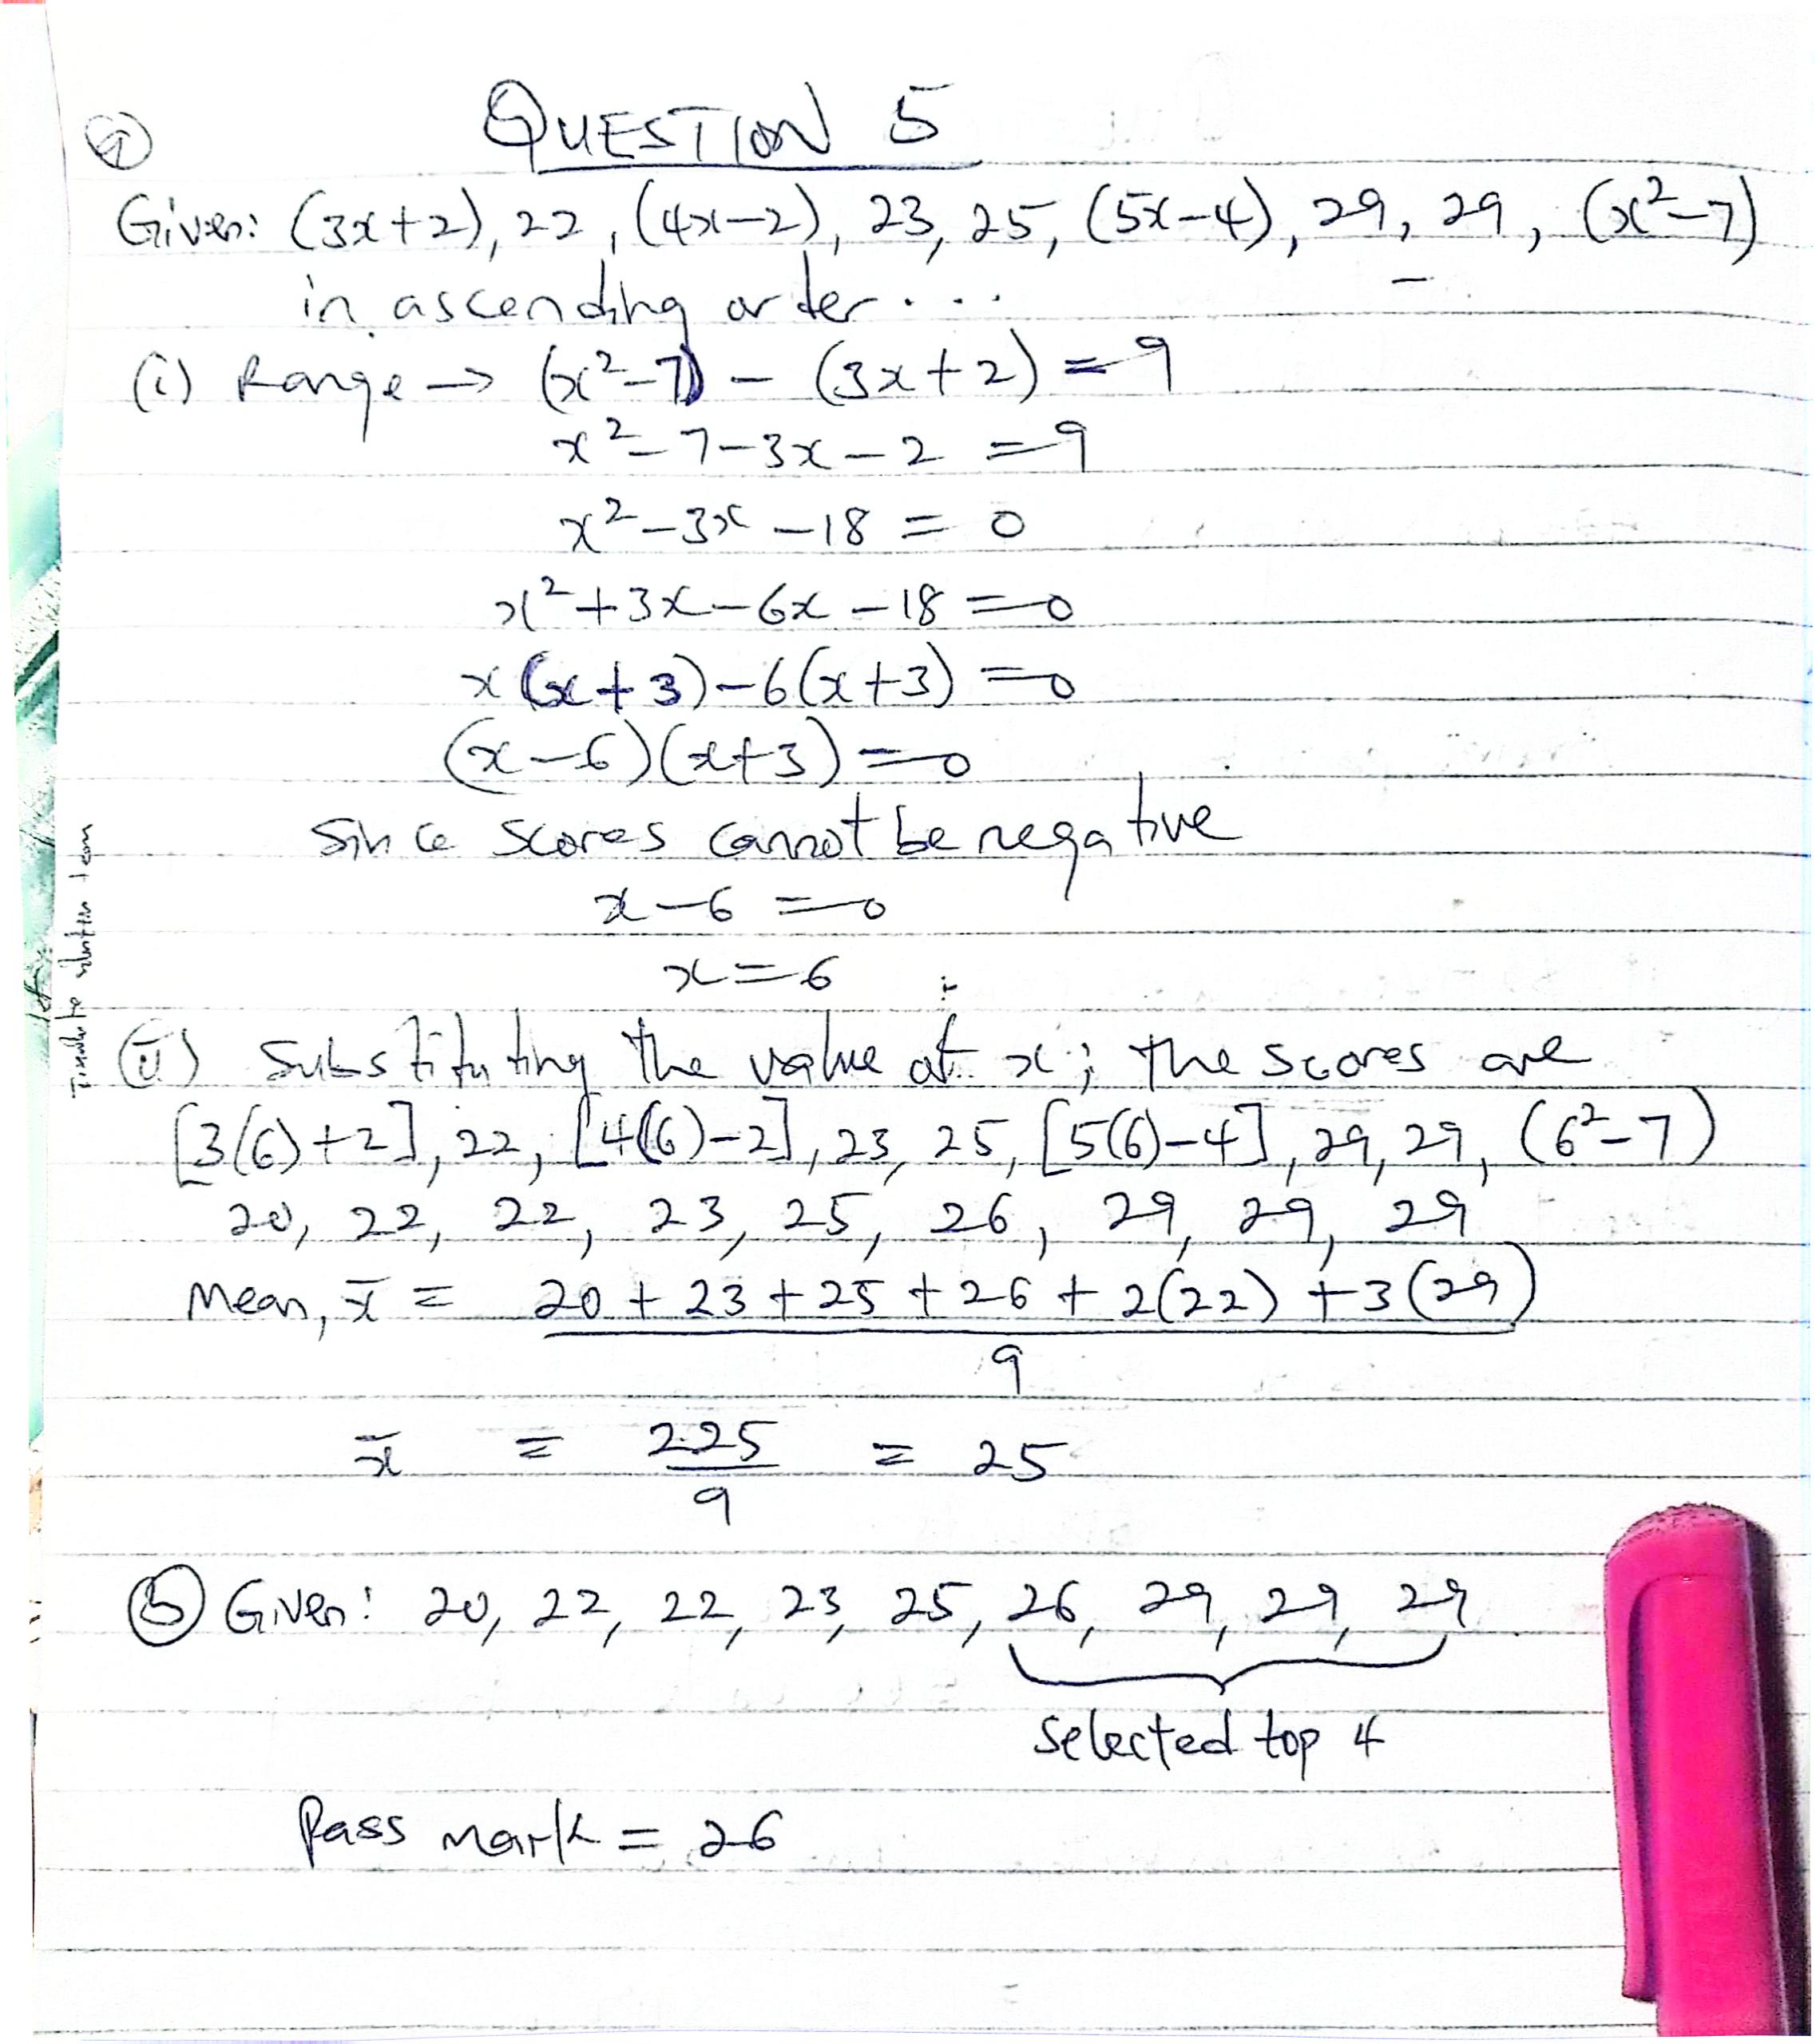 QUESTION 5
(a)
Given: (3x+2), 22, (4x-2), 23, 25, (5x-4), 29, 29, (x²-7)
in ascending order...
(i) Range → (x²-7) - (3x+2) = 9
x²-7-3x-2 = 9
x²-3x-18 = 0
x²+3x-6x-18=0
x(x+3)-6(x+3)=0
(x-6)(x+3)=0
Since scores cannot be negative
x-6=0
x=6
(ii) Substituting the value of x; the scores are
[3(6)+2], 22, [4(6)-2], 23, 25, [5(6)-4], 29, 29, (6²-7)
20, 22, 22, 23, 25, 26, 29, 29, 29
Mean, x̄ = 20+23+25+26+2(22)+3(29)
9
x̄ = 225 = 25
9
(b) Given: 20, 22, 22, 23, 25, 26, 29, 29, 29
Selected top 4
Pass mark = 26
solution team